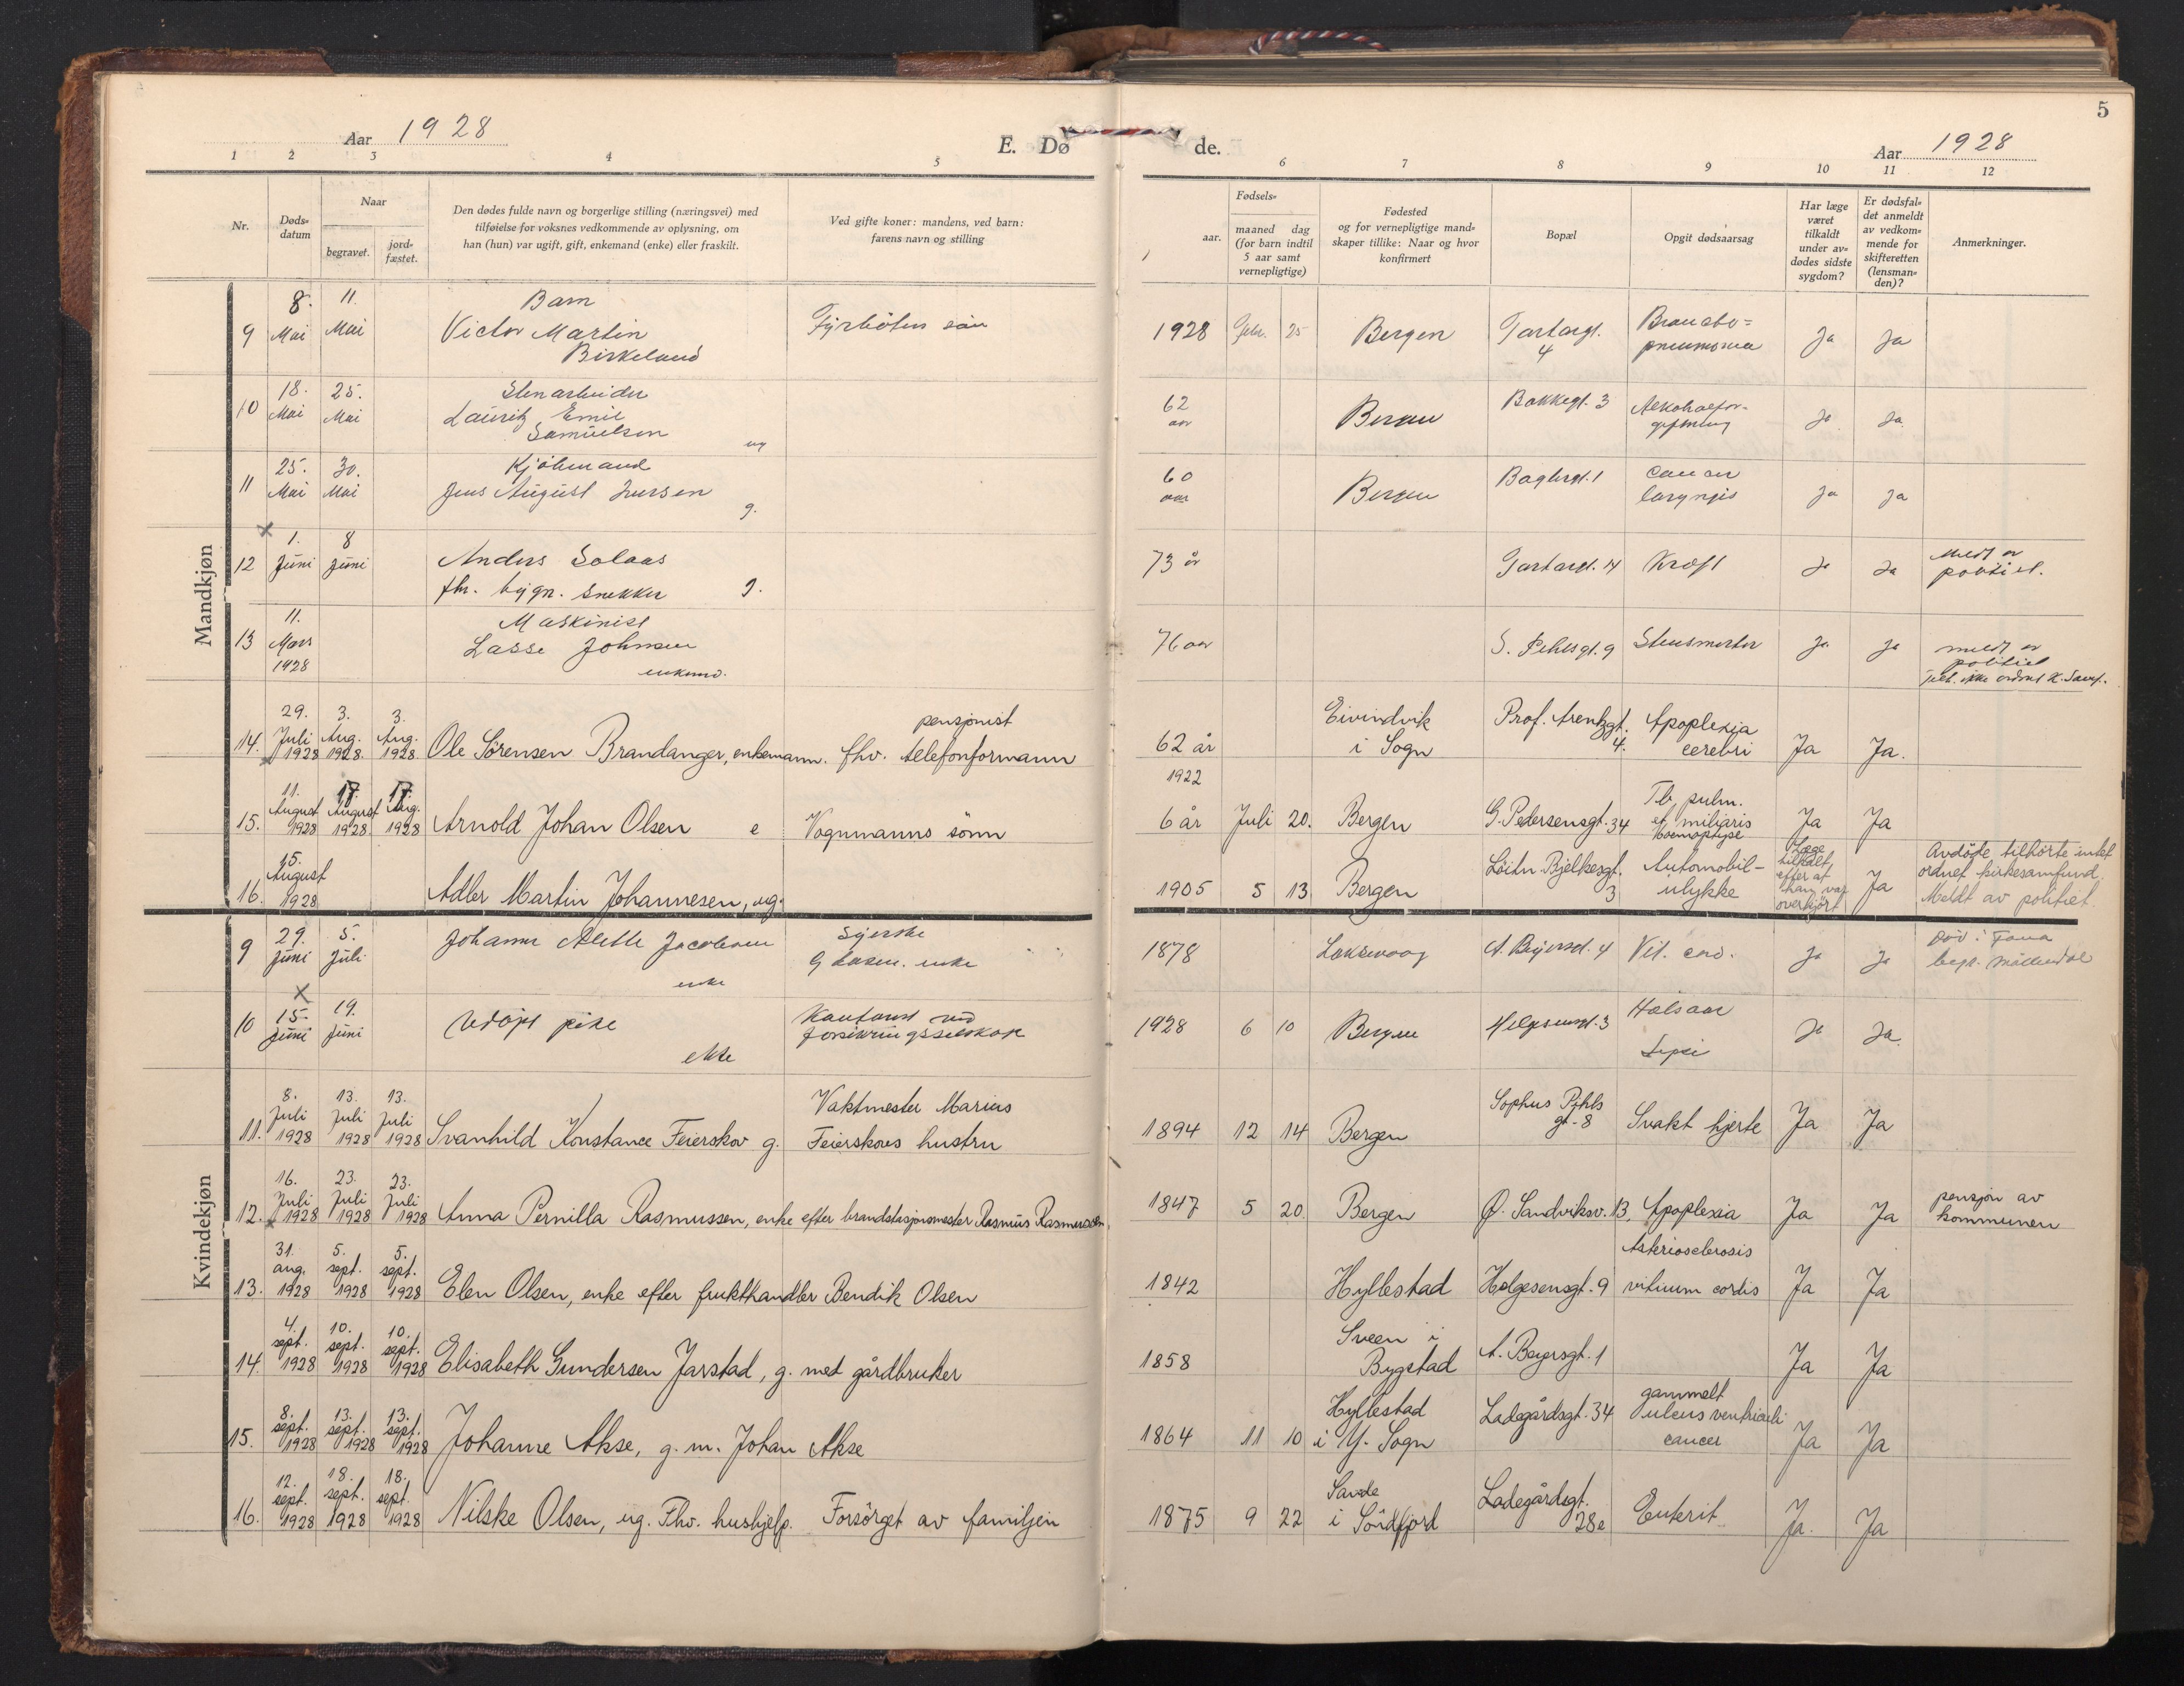 5
Aar 1928
E. Dø de.
Aar 1928
1 2 3 4 5 6 7 8 9 10 11 12
Nr.
Døds-
datum
Naar
begravet.
jord-
fæstet.
Den dødes fulde navn og borgerlige stilling (næringsvei) med
tilføielse for voksnes vedkommende av oplysning, om
han (hun) var ugift, gift, enkemand (enke) eller fraskilt.
Ved gifte koner: mandens, ved barn:
farens navn og stilling
Fødsels-
aar.
maaned dag
(for barn indtil
5 aar samt
vernepligtige)
Fødested
og for vernepligtige mand-
skaper tillike: Naar og hvor
konfirmert
Bopæl
Opgit dødsaarsag
Har læge
været
tilkaldt
under av-
dødes sidste
sygdom?
Er dødsfal-
det anmeldt
av vedkom-
mende for
skifteretten
(lensman-
den)?
Anmerkninger.
Mandkjøn
9 8. Mai 11. Mai Barn
Victor Martin
Birkeland
Fyrbøters søn
1928 Febr. 25 Bergen Tartargt. 4
pneumonia Ja Ja
10 18. Mai 25. Mai Stenarbeider
Lauritz Emil
Samuelsen ug
62 aar Bergen Bakkegt. 3 Alkoholfor-
giftning Ja Ja
11 25. Mai 30. Mai
Jens August Iversen g.
60 aar Bergen Baglergt. 1 Cancer
laryngis Ja Ja
12 1. Juni 8 Juni Anders Solaas
fhr. bygn. snekker g.
73 år Tartargt. 14 Kræft Ja Ja meldt av
politiet.
13 11. Mars 1928 Maskinist
Lasse Johnsen
enkemd.
76 aar S. Pihlsgt. 9 Ja Ja meldt av
politiet
14. 29. Juli 1928 3. Aug. 1928 3. Aug. 1928 Ole Sörensen Brandanger, enkemann. pensjonist
fhv. telefonformann
62 år Eivindvik
i Sogn Prof. Arentzgt. 4. Apoplexia
cerebri Ja Ja.
15. 11. August 1928 17. August 1928 17. Aug. 1928 Arnold Johan Olsen e Vognmanns sönn
1922
6 år Juli 20. Bergen G. Pedersensgt. 34 Tb. pulm.
et miliaris
Haemoptyse Ja Ja
16. 15. August 1928 Adler Martin Johannesen, ug.
1905 5 13 Bergen Löitn. Bjelkesgt. 3 Automobil-
ulykke Læge
tilkaldt,
efter at
han var
overkjört Ja Avdöde tilhörte intet
ordnet kirkesamfund.
Meldt av politiet.
Kvindekjøn
9 29. Juni 5. Juli Johanne Alette Jacobsen
enke
Syerske
1878 Laksevaag A. Beyersgt. 4 Vit. cord. Ja Ja död i Fana
begr. Möllendal
10 15. Juni 19. Juni Udöpt pike
ekte
Kontorist ved
forsikringsselskap
1928 6 10 Bergen Helgesensgt. 3
Ja Ja
11. 8. Juli 1928 13. Juli 1928 13. Juli 1928 Svanhild Konstance Feierskov g. Vaktmester Marius
Feierskovs hustru
1894 12 14 Bergen Sophus Pihls
gt. 8 Svakt hjerte Ja Ja
12. 16. Juli 1928 23. Juli 1928 23. Juli 1928 Anna Pernilla Rasmussen, enke efter brandstasjonsmester Rasmus Rasmussen
1847 5 20. Bergen Ø. Sandviksv. 13. Apoplexia Ja Ja pensjon av
kommunen
13. 31. aug. 1928 5. sept. 1928 5. sept. 1928 Elen Olsen, enke efter frukthandler Bendik Olsen
1842 Hyllestad Helgesensgt. 9 Arteriosclerosis
vitium cordis Ja Ja
14. 4. sept. 1928 10. sept. 1928 10. sept. 1928 Elisabeth Gundersen Jarstad, g. med gårdbruker
1858 Sveen i
Bygstad A. Beyersgt. 1 Ja Ja
15. 8. sept. 1928 13. sept. 1928 13. sept. 1928 Johanne Akse, g. m. Johan Akse
1864 11 10 Hyllestad
i Y. Sogn Ladegårdsgt. 34 gammelt
ulcus ventriculi
cancer Ja Ja
16. 12. sept. 1928 18. sept. 1928 18. sept. 1928 Nilske Olsen, ug. Fhv. hushjelp. Forsörget av familjen
1875 9 22 Sande
i Söndfjord Ladegårdsgt. 28e Enterit Ja. Ja